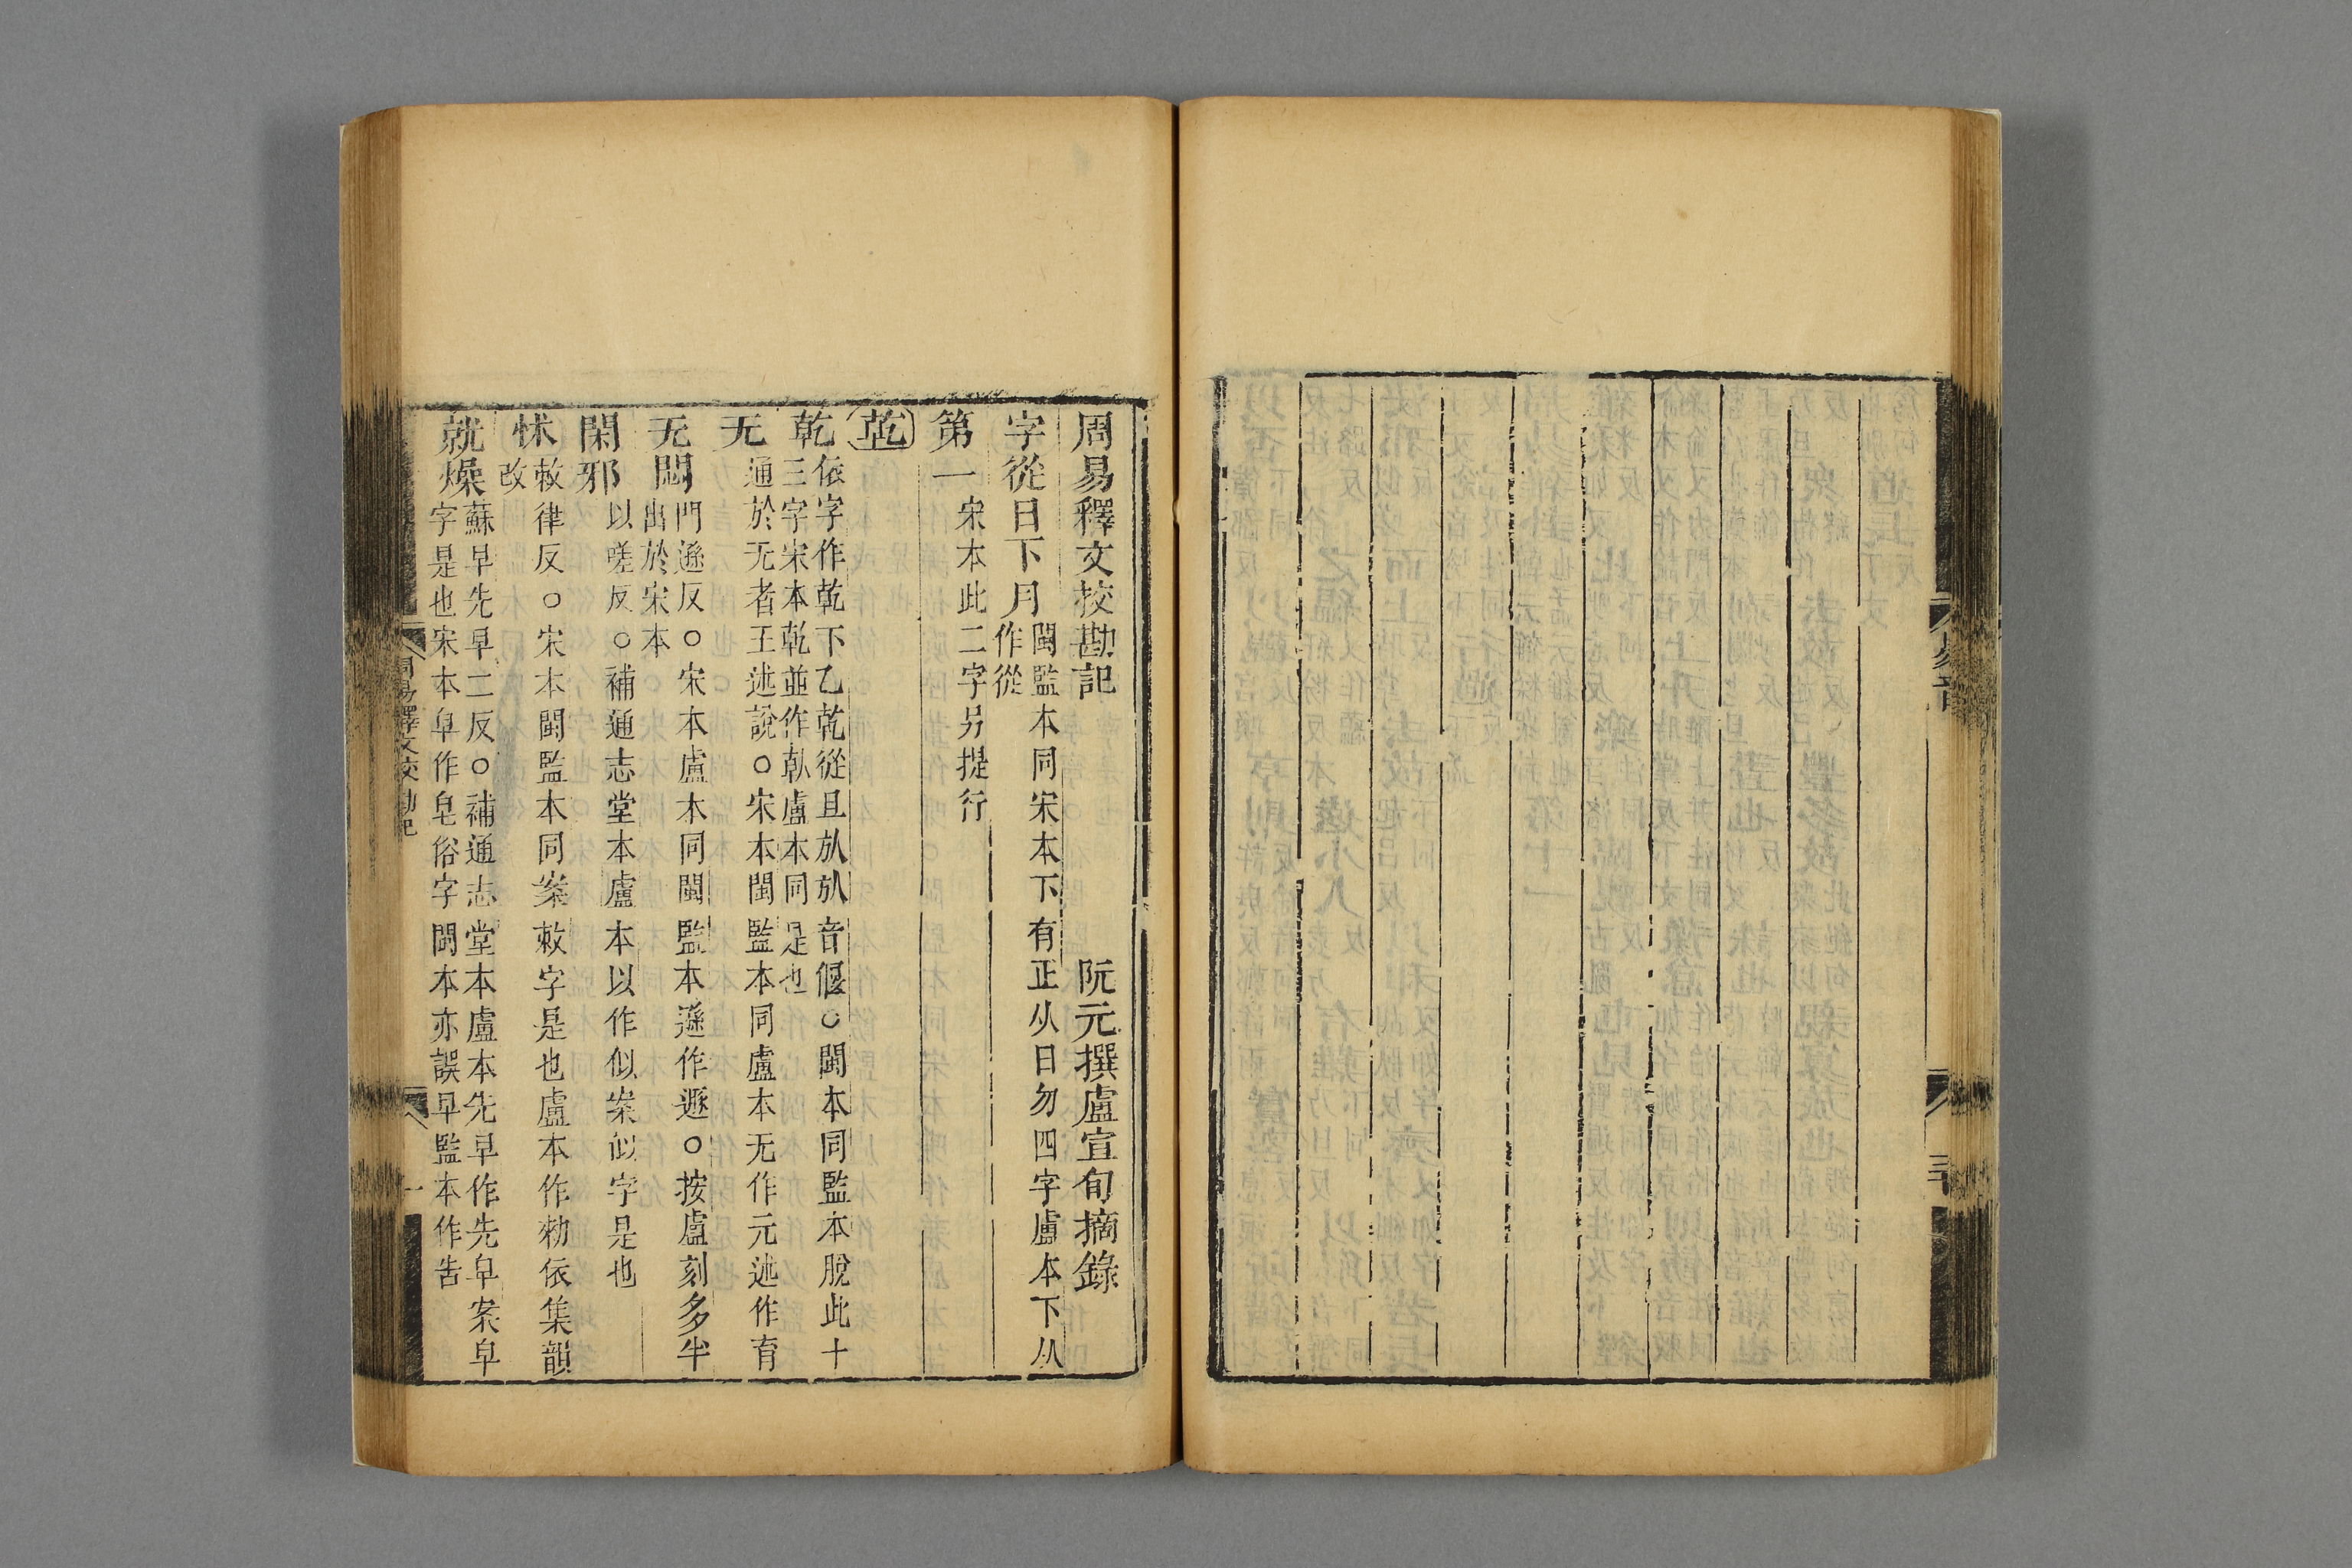 周易釋文挍勘記　阮元撰盧宣旬摘錄
字從日下月
閩監本同宋本下有正从日勿四字盧本下从
作從
第一
宋本此二字另提行
乾
乾
依字作乾下乙乾從旦㫃㫃音偃○閩本同監本脫此十
三字宋本乾並作倝盧本同是也
无
通於无者王述說○宋本閩監本同盧本无作元述作育
无悶
門遜反○宋本盧本同閩監本遜作遯○按盧刻多半
出於宋本
閑邪
以嗟反○補通志堂本盧本以作似案似字是也
怵
敕律反○宋本閩監本同案敕字是也盧本作勑依集韻
改
就燥
蘇早先早二反○補通志堂本盧本先早作先皁案皁
字是也宋本皁作皂俗字閩本亦誤早監本作告
周易釋文挍勘記
一